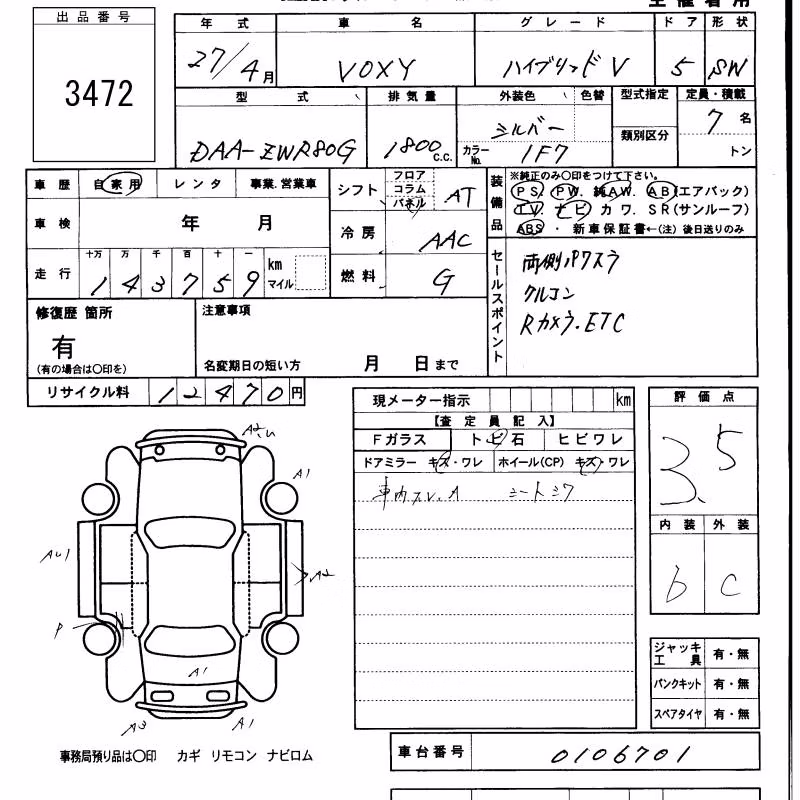 主催者用
出品番号
3472
年式 車名 グレード ドア 形状
27/4月 VOXY ハイブリッドV 5 SW
型式 排気量 外装色 色替 型式指定 定員・積載
類別区分
DAA-ZWR80G 1800c.c. シルバー 7名
カラーNo. 1F7 トン
車歴 自家用 レンタ 事業.営業車
車検 年 月
走行 十万 万 千 百 十 一
143759 km マイル
シフト フロア コラム パネル AT
冷房 AAC
燃料 G
装備品 ※純正のみ○印をつけて下さい。
PS. PW. 純AW. AB(エアバック)
TV. ナビ カワ. SR(サンルーフ)
ABS ・ 新車保証書←(注) 後日送りのみ
セールスポイント
両側パワスラ
クルコン
Rカメラ.ETC
修復歴 箇所
有
(有の場合は○印を)
注意事項
名変期日の短い方 月 日まで
リサイクル料 12470円
現メーター指示 km
【査定員記入】
Fガラス トビ石 ヒビワレ
ドアミラー キズ・ワレ ホイール(CP) キズ・ワレ
シートシワ
評価点
3.5
内装 外装
b C
A1
A2
P
A1
A3
A1
ジャッキ工具 有・無
パンクキット 有・無
スペアタイヤ 有・無
事務局預り品は○印 カギ リモコン ナビロム
車台番号 0106701